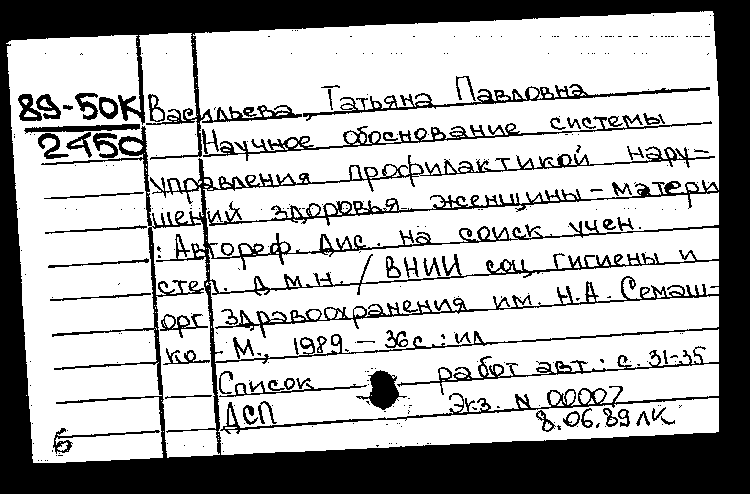 89-50К Васильева, Татьяна Павловна
2450 Научное обоснование системы
управления профилактикой нару-
шений здоровья женщины-матери
: Автореф. дис. на соиск. учен.
степ. д.м.н. / ВНИИ соц. гигиены и
орг. здравоохранения им. Н.А. Семаш-
ко - М., 1989. - 36с. : ил
Список работ авт.: с. 31-35
ДСП Экз. N 00007
8.06.89 ЛК
Б